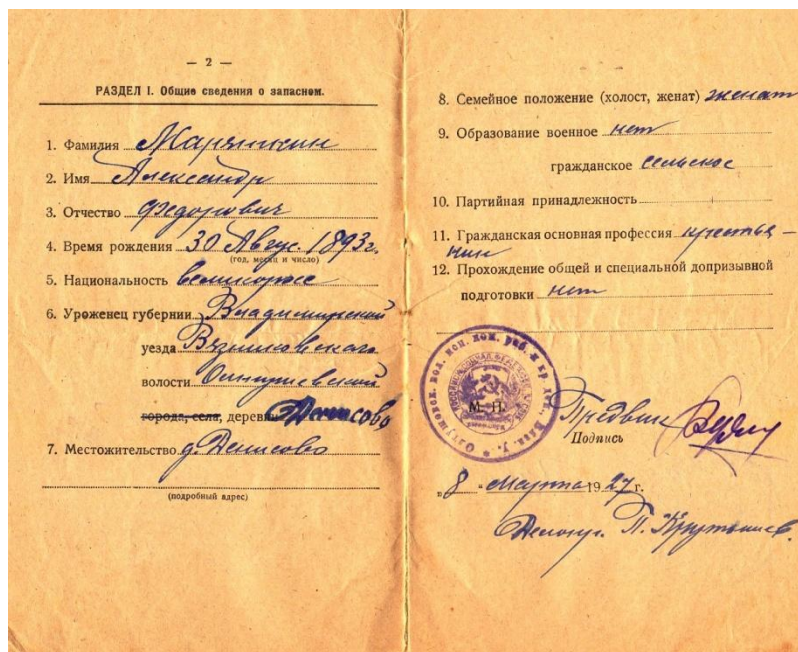 — 2 —
РАЗДЕЛ I. Общие сведения о запасном.
1. Фамилия
2. Имя Александр
3. Отчество Федорович
4. Время рождения 30 Авгус. 1893г.
(год, месяц и число)
5. Национальность великорос
6. Уроженец губернии Владимирской
уезда Вязниковского
волости Олтушевской
города, села, деревни Денисово
7. Местожительство д. Денисово
(подробный адрес)
8. Семейное положение (холост, женат) женат
9. Образование военное нет
гражданское сельское
10. Партийная принадлежность
11. Гражданская основная профессия крестья-
нин
12. Прохождение общей и специальной допризывной
подготовки нет
М. П.
Предвик
Подпись
„8“ Марта 1927 г.
Делопр. П.